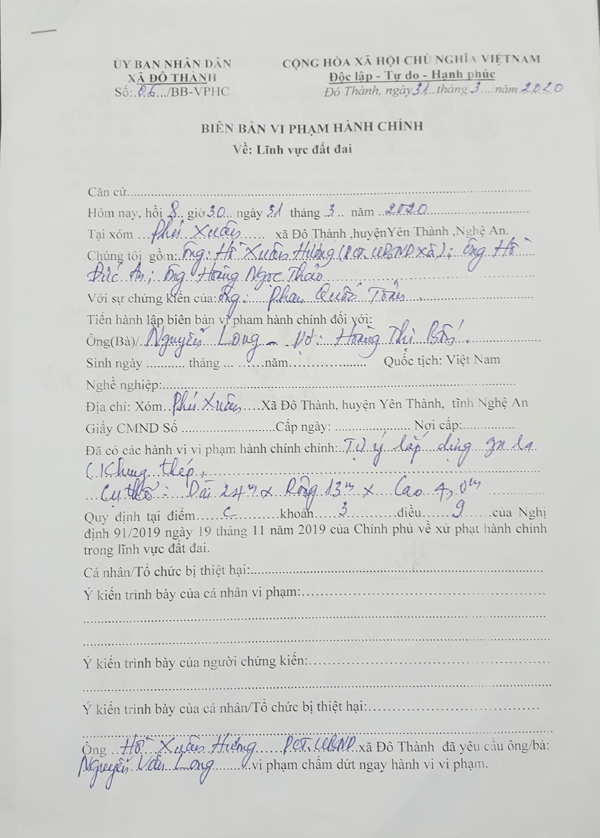 ỦY BAN NHÂN DÂN CỘNG HÒA XÃ HỘI CHỦ NGHĨA VIỆTNAM
XÃ ĐÔ THÀNH Độc lập - Tự do - Hạnh phúc
Số:.06.../BB-VPHC Đô Thành, ngày31..tháng.3....năm.2020
BIÊN BẢN VI PHẠM HÀNH CHÍNH
Về: Lĩnh vực đất đai
Căn cứ
Hôm nay, hồi 8. giờ30.. ngày 31 tháng .3.. năm .2020
Tại xóm ..Phú Xuân...... xã Đô Thành ,huyệnYên Thành ,Nghệ An.
Chúng tôi gồm: Ông: Hồ Xuân Hướng (P.CT. UBND xã); Ông Hồ
Đức An; Ông Hoàng Ngọc Thảo
Với sự chứng kiến của: Ông: Phan Quốc Toản.
Tiến hành lập biên bản vi pham hành chính đối với:
Ông(Bà)/ Nguyễn Long - Vợ: Hoàng Thị
Sinh ngày ........... tháng ... ....năm................. Quốc tịch: Việt Nam
Nghề nghiệp:
Địa chỉ: Xóm..Phú Xuân....Xã Đô Thành, huyện Yên Thành, tỉnh Nghệ An
Giấy CMND Số ........................Cấp ngày: ........................ Nơi cấp:
Đã có các hành vi vi phạm hành chính chính: Tự ý lắp dựng
(Khung thép.
Cụ thể: Dài 24m x Rộng 13m x Cao 4,0m
Quy định tại điểm......C..........khoản......3..........điều......9......của Nghị
định 91/2019 ngày 19 tháng 11 năm 2019 của Chính phủ về xử phạt hành chính
trong lĩnh vực đất đai.
Cá nhân/Tổ chức bị thiệt hại:
Ý kiến trình bày của cá nhân vi phạm:
Ý kiến trình bày của người chứng kiến:
Ý kiến trình bày của cá nhân/Tổ chức bị thiệt hại:
Ông ..Hồ Xuân Hướng.....PCT.UBND xã Đô Thành đã yêu cầu ông/bà:
Nguyễn Văn Long......vi phạm chấm dứt ngay hành vi vi phạm.